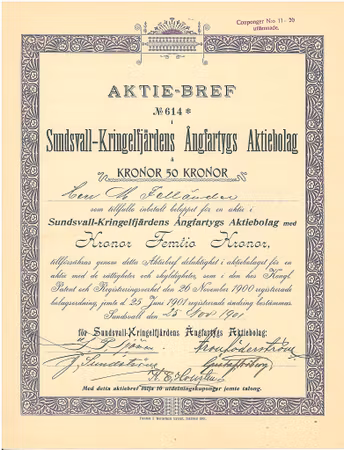 Couponger N:ris 11-20
utlämnade.
AKTIE-BREF
№ 614*
i
Sundsvall-Kringelfjärdens Ångfartygs Aktiebolag
à
KRONOR 50 KRONOR
Herr
som tillfullo inbetalt beloppet för en aktie i
Sundsvall-Kringelfjärdens Ångfartygs Aktiebolag med
Kronor Femtio Kronor,
tillförsäkras genom detta Aktiebref delaktighet i aktiebolaget för en
aktie med de rättigheter och skyldigheter, som i den hos Kongl.
Patent och Registreringsverket den 26 November 1900 registrerade
bolagsordning, jemte d. 25 Juni 1901 registrerad ändring bestämmas.
Sundsvall den 25 Nov 1901
för Sundsvall-Kringelfjärdens Ångfartygs Aktiebolag:
Med detta aktiebref följa 10 utdelningskuponger jemte talong.